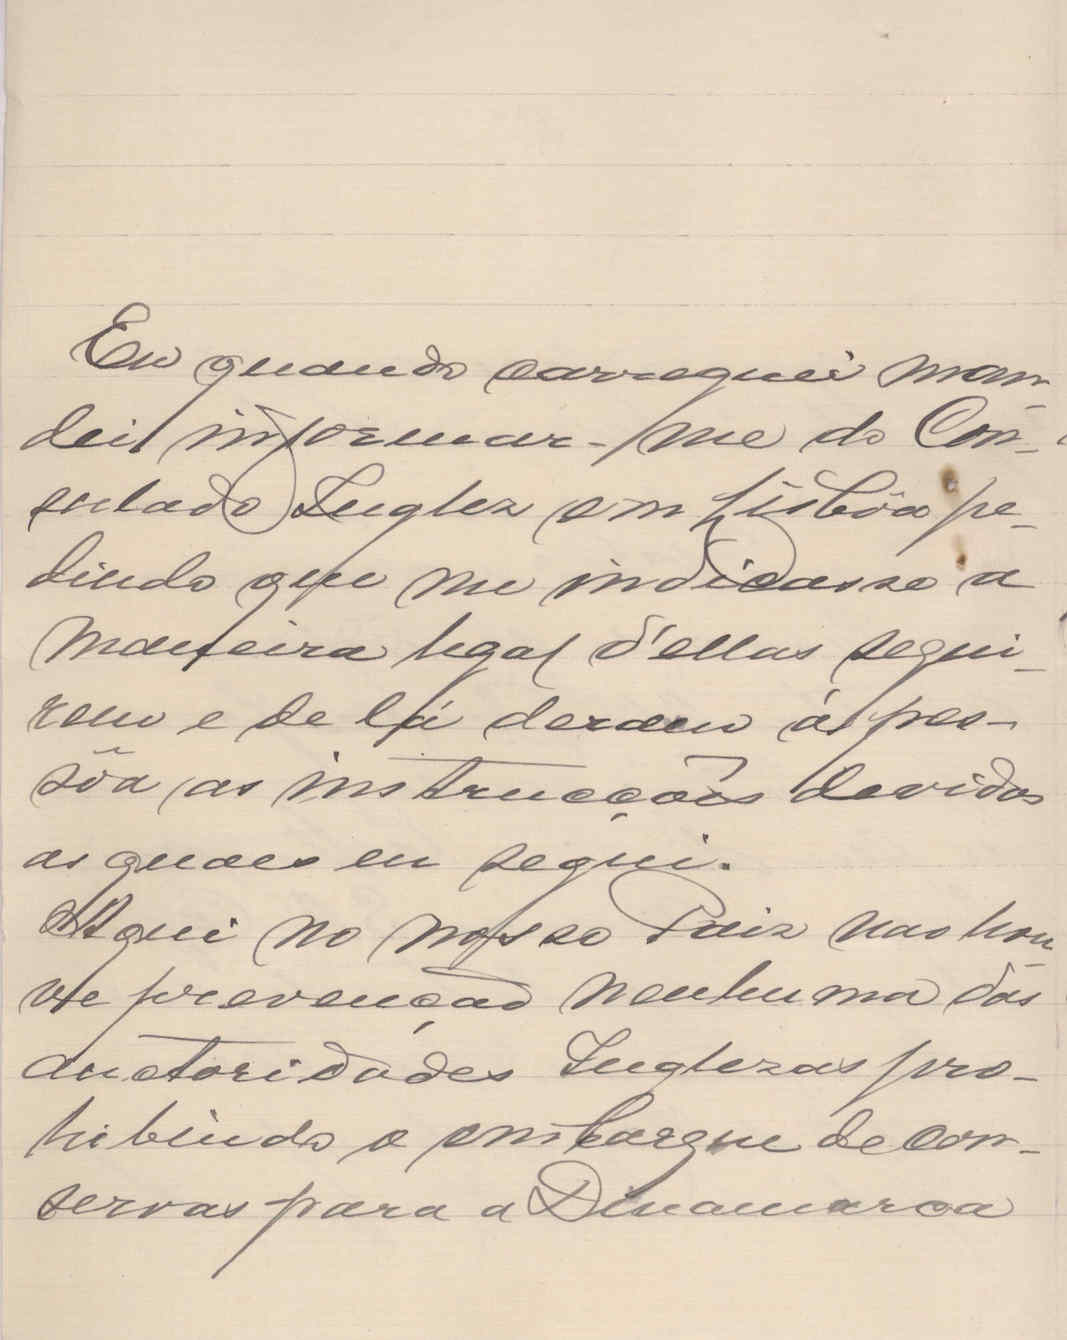 Eu quando carreguei man-
dei informar-me do Con-
sulado Inglez em Lisbôa pe-
dindo que me indicasse a
maneira legal d'ellas segui-
rem e de lá deram á pes-
sôa as instrucções devidas
as quaes eu segui.
Aqui no nosso Paiz nao hou
ve prevençao nenhuma das
auctoridades Inglezas pro-
hibindo o embarque de con-
servas para a Dinamarca